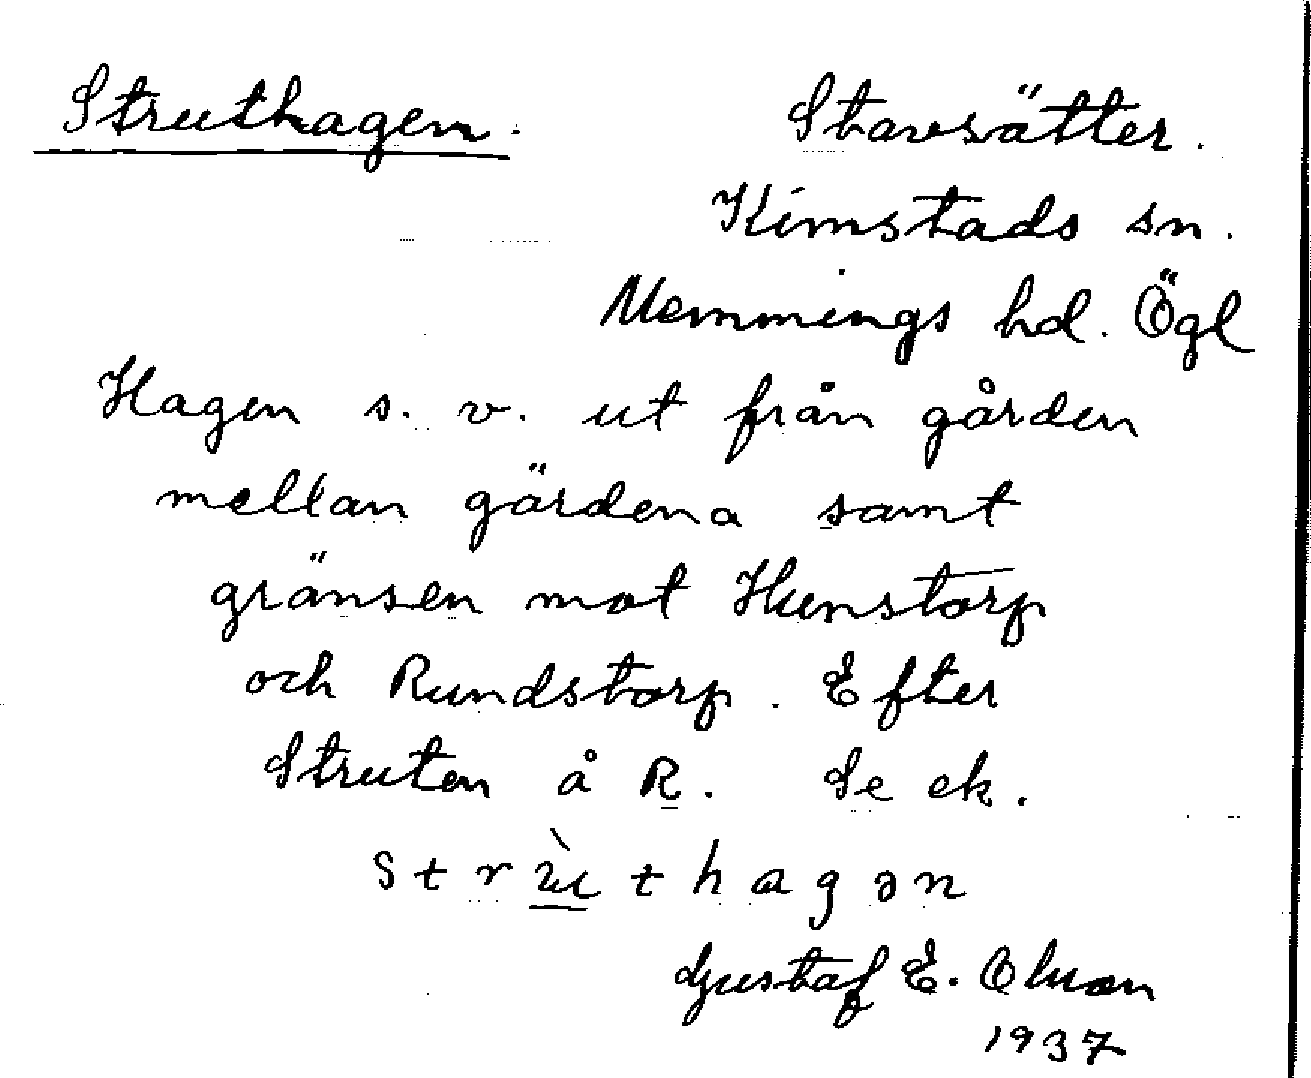 Struthagen. Stavsätter.
Kimstads sn.
Memmings hd. Ögl
Hagen s. v. ut från gården
mellan gärdena samt
gränsen mot Hunstorp
och Rundstorp. Efter
Struten å R. Se ek.
strùthagən
Gustaf E. Olsson
1937